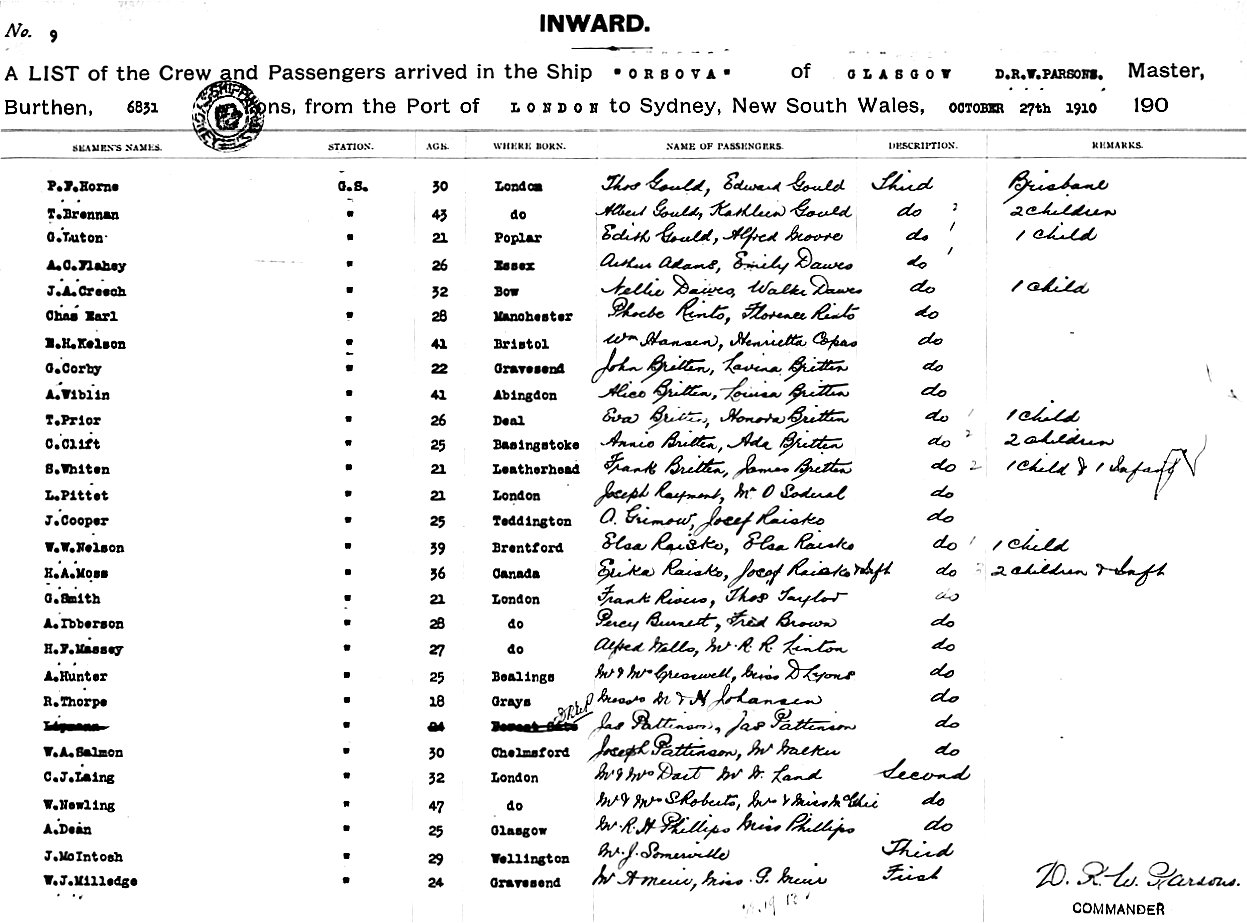 No. 9
INWARD.
A LIST of the Crew and Passengers arrived in the Ship "ORSOVA" of GLASGOW D.R.W.PARSONS. Master,
Burthen, 6831 ons, from the Port of LONDON to Sydney, New South Wales, OCTOBER 27th 1910 190
SEAMEN'S NAMES. STATION. AGE. WHERE BORN. NAME OF PASSENGERS. DESCRIPTION. REMARKS.
P.F.Horne G.S. 30 London Thos Gould, Edward Gould Third Brisbane
T.Brennan " 43 do Albert Gould, Kathleen Gould do 2 2 Children
G.Luton " 21 Poplar Edith Gould, Alfred Moore do 1 1 Child
A.C.Flahey " 26 Essex Arthur Adams, Emily Dawes do 1
J.A.Creech " 32 Bow Nellie Dawes, Walke Dawes do 1 Child
Chas Earl " 28 Manchester Phoebe Rinto, Florence Rinto do
E.H.Kelson " 41 Bristol Wm Hansen, Henrietta Copas do
G.Corby " 22 Gravesend John Britten, Lavina Britten do
A.Wiblin " 41 Abingdon Alice Britten, Louisa Britten do
T.Prior " 26 Deal Eva Britten, Honora Britten do 1 1 Child
C.Clift " 25 Basingstoke Annie Britten, Ada Britten do 2 2 Children
S.Whiten " 21 Leatherhead Frank Britten, James Britten do 2 1 Child & 1 Infant
L.Pittet " 21 London Joseph Rayment, Mr O Soderal do
J.Cooper " 25 Teddington O. Grimow, Josef Raisko do
W.W.Nelson " 39 Brentford Elsa Raisko, Elsa Raisko do 1 1 Child
H.A.Moss " 36 Canada Erika Raisko, Josef Raisko & Infh do 2 Children & Infh
G.Smith " 21 London Frank Rivers, Thos Taylor do
A.Ibberson " 28 do Percy Burnett, Fred Brown do
H.F.Massey " 27 do Alfred Wells, Mr R R Linton do
A.Hunter " 25 Bealings Mr & Mrs Greswell, Miss D Lyons do
R.Thorpe " 18 Grays Messrs M & H Johansen do
Lipman " 24 Forest Gate Jas Pattinson, Jas Pattinson do
W.A.Salmon " 30 Chelmsford Joseph Pattinson, Mr Walker do
C.J.Laing " 32 London Mr & Mrs Dart Mr W. Land Second
W.Newling " 47 do Mr & Mrs S Roberts, Mrs & Miss McGhie do
A.Dean " 25 Glasgow Mr R H Phillips Miss Phillips do
J.McIntosh " 29 Wellington Mr J. Somerville Third
W.J.Milledge " 24 Gravesend Mr A Meir, Miss P. Meir First
D. R. W. Parsons.
COMMANDER